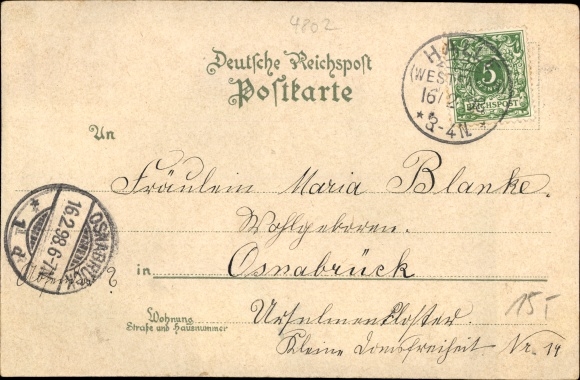 4802
Deutsche Reichspost
Postkarte
HALLE
(WESTF.)
16/2
* 3-4N. *
5
REICHSPOST
An
Fräulein Maria Blanke.
Wohlgeboren.
in Osnabrück
OSNABRÜCK
16.2.98.6-7N.
* 1 d
15,-
Wohnung
Straße und Hausnummer
Ursulinenkloster.
Kleine Domsfreiheit Nr. 14